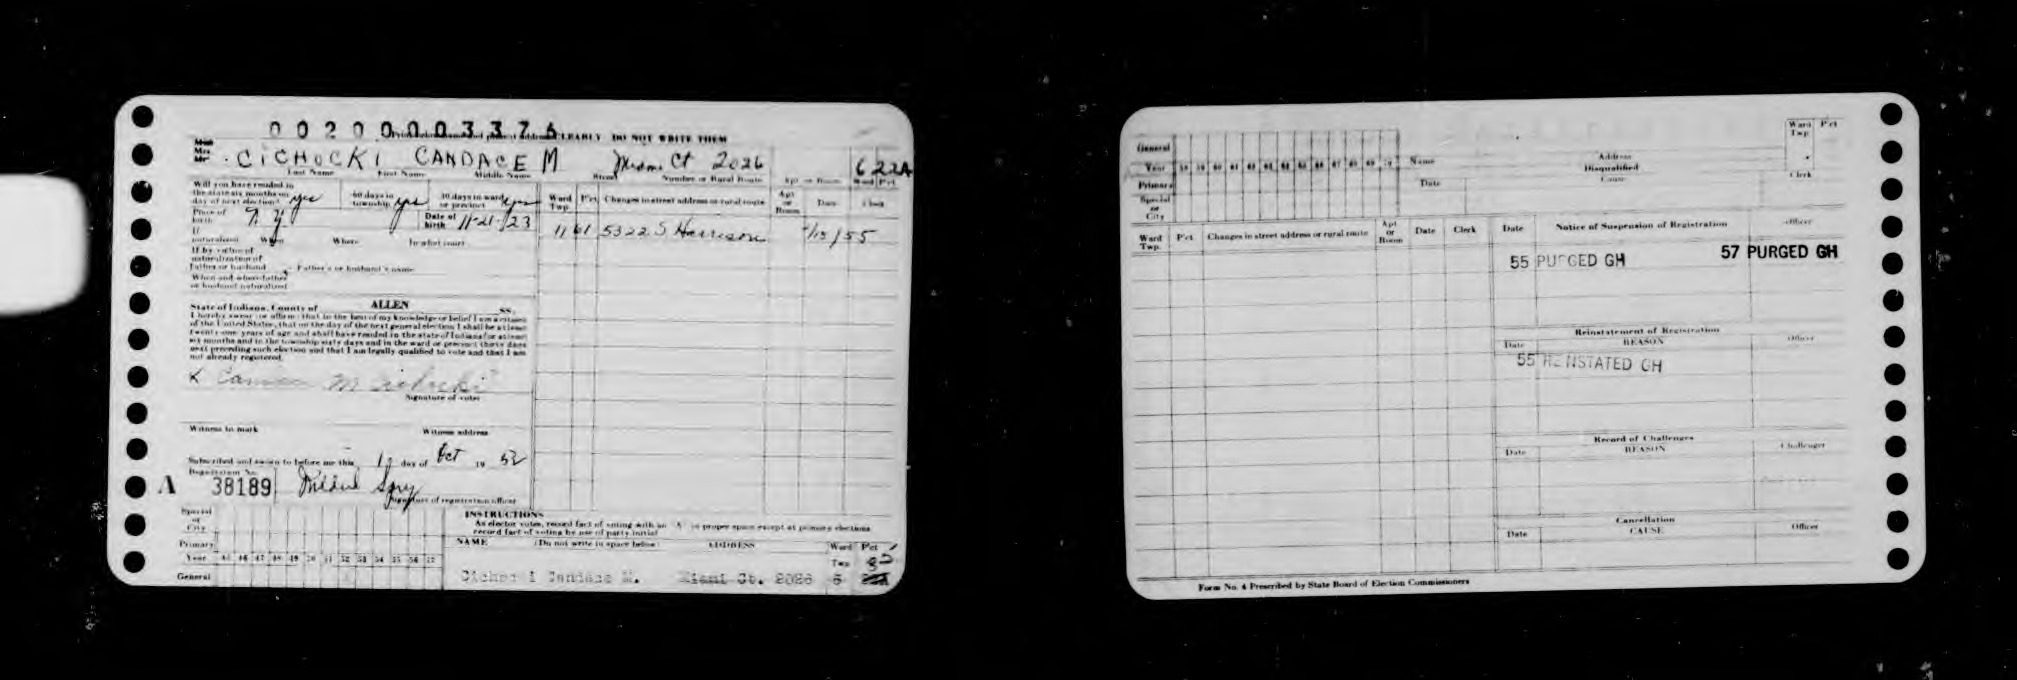 00200003376
CLEARLY DO NOT WRITE THEM
Miss
Mrs
Mr. CICHOCKI CANDACE M Miami Ct 2026 6 22A
Last Name First Name Middle Name Street Number or Rural Route Apt or Room Ward Pct
Will you have resided in
the state six months on
day of next election? yes 60 days in
township yes 30 days in ward
or precinct yes
Place of
birth N. Y. Date of
birth 11-21-/23
If
naturalized When Where In what court
If by virtue of
naturalization of
Father or husband Father's or husband's name
When and where father
or husband naturalized
Ward
Twp. Pct. Changes in street address or rural route Apt
or
Room Date Clerk
11 61 5322 S Harrison /13/55
State of Indiana, County of ALLEN SS:
I hereby swear or affirm that to the best of my knowledge or belief I am a citizen
of the United States, that on the day of the next general election I shall be at least
twenty-one years of age and shall have resided in the state of Indiana for at least
six months and in the township sixty days and in the ward or precinct thirty days
next preceding such election and that I am legally qualified to vote and that I am
not already registered.
X Candace M Cichocki
Signature of voter
Witness to mark Witness address
Subscribed and sworn to before me this day of Oct 19 52
Registration No.
A 38189 Mildred Spry
Signature of registration officer
Special
or
City
Primary
Year 45 46 47 48 49 50 51 52 53 54 55 56 57
General
INSTRUCTIONS
As elector votes, record fact of voting with an "X" in proper space except at primary elections
record fact of voting by use of party initial
NAME (Do not write in space below) ADDRESS Ward
Twp Pct
Cichocki Candace M. Miami Ct. 2026 6 22A
General
Year 58 59 60 61 62 63 64 65 66 67 68 69 70
Primary
Special
or
City
Name Address
Disqualified
Date Cause Clerk
Ward
Twp Pct
Ward
Twp. Pct Changes in street address or rural route Apt
or
Room Date Clerk
Date Notice of Suspension of Registration Officer
55 PURGED GH 57 PURGED GH
Reinstatement of Registration
Date REASON Officer
55 REINSTATED GH
Record of Challenges
Date REASON Challenger
Cancellation
Date CAUSE Officer
Form No. 4 Prescribed by State Board of Election Commissioners